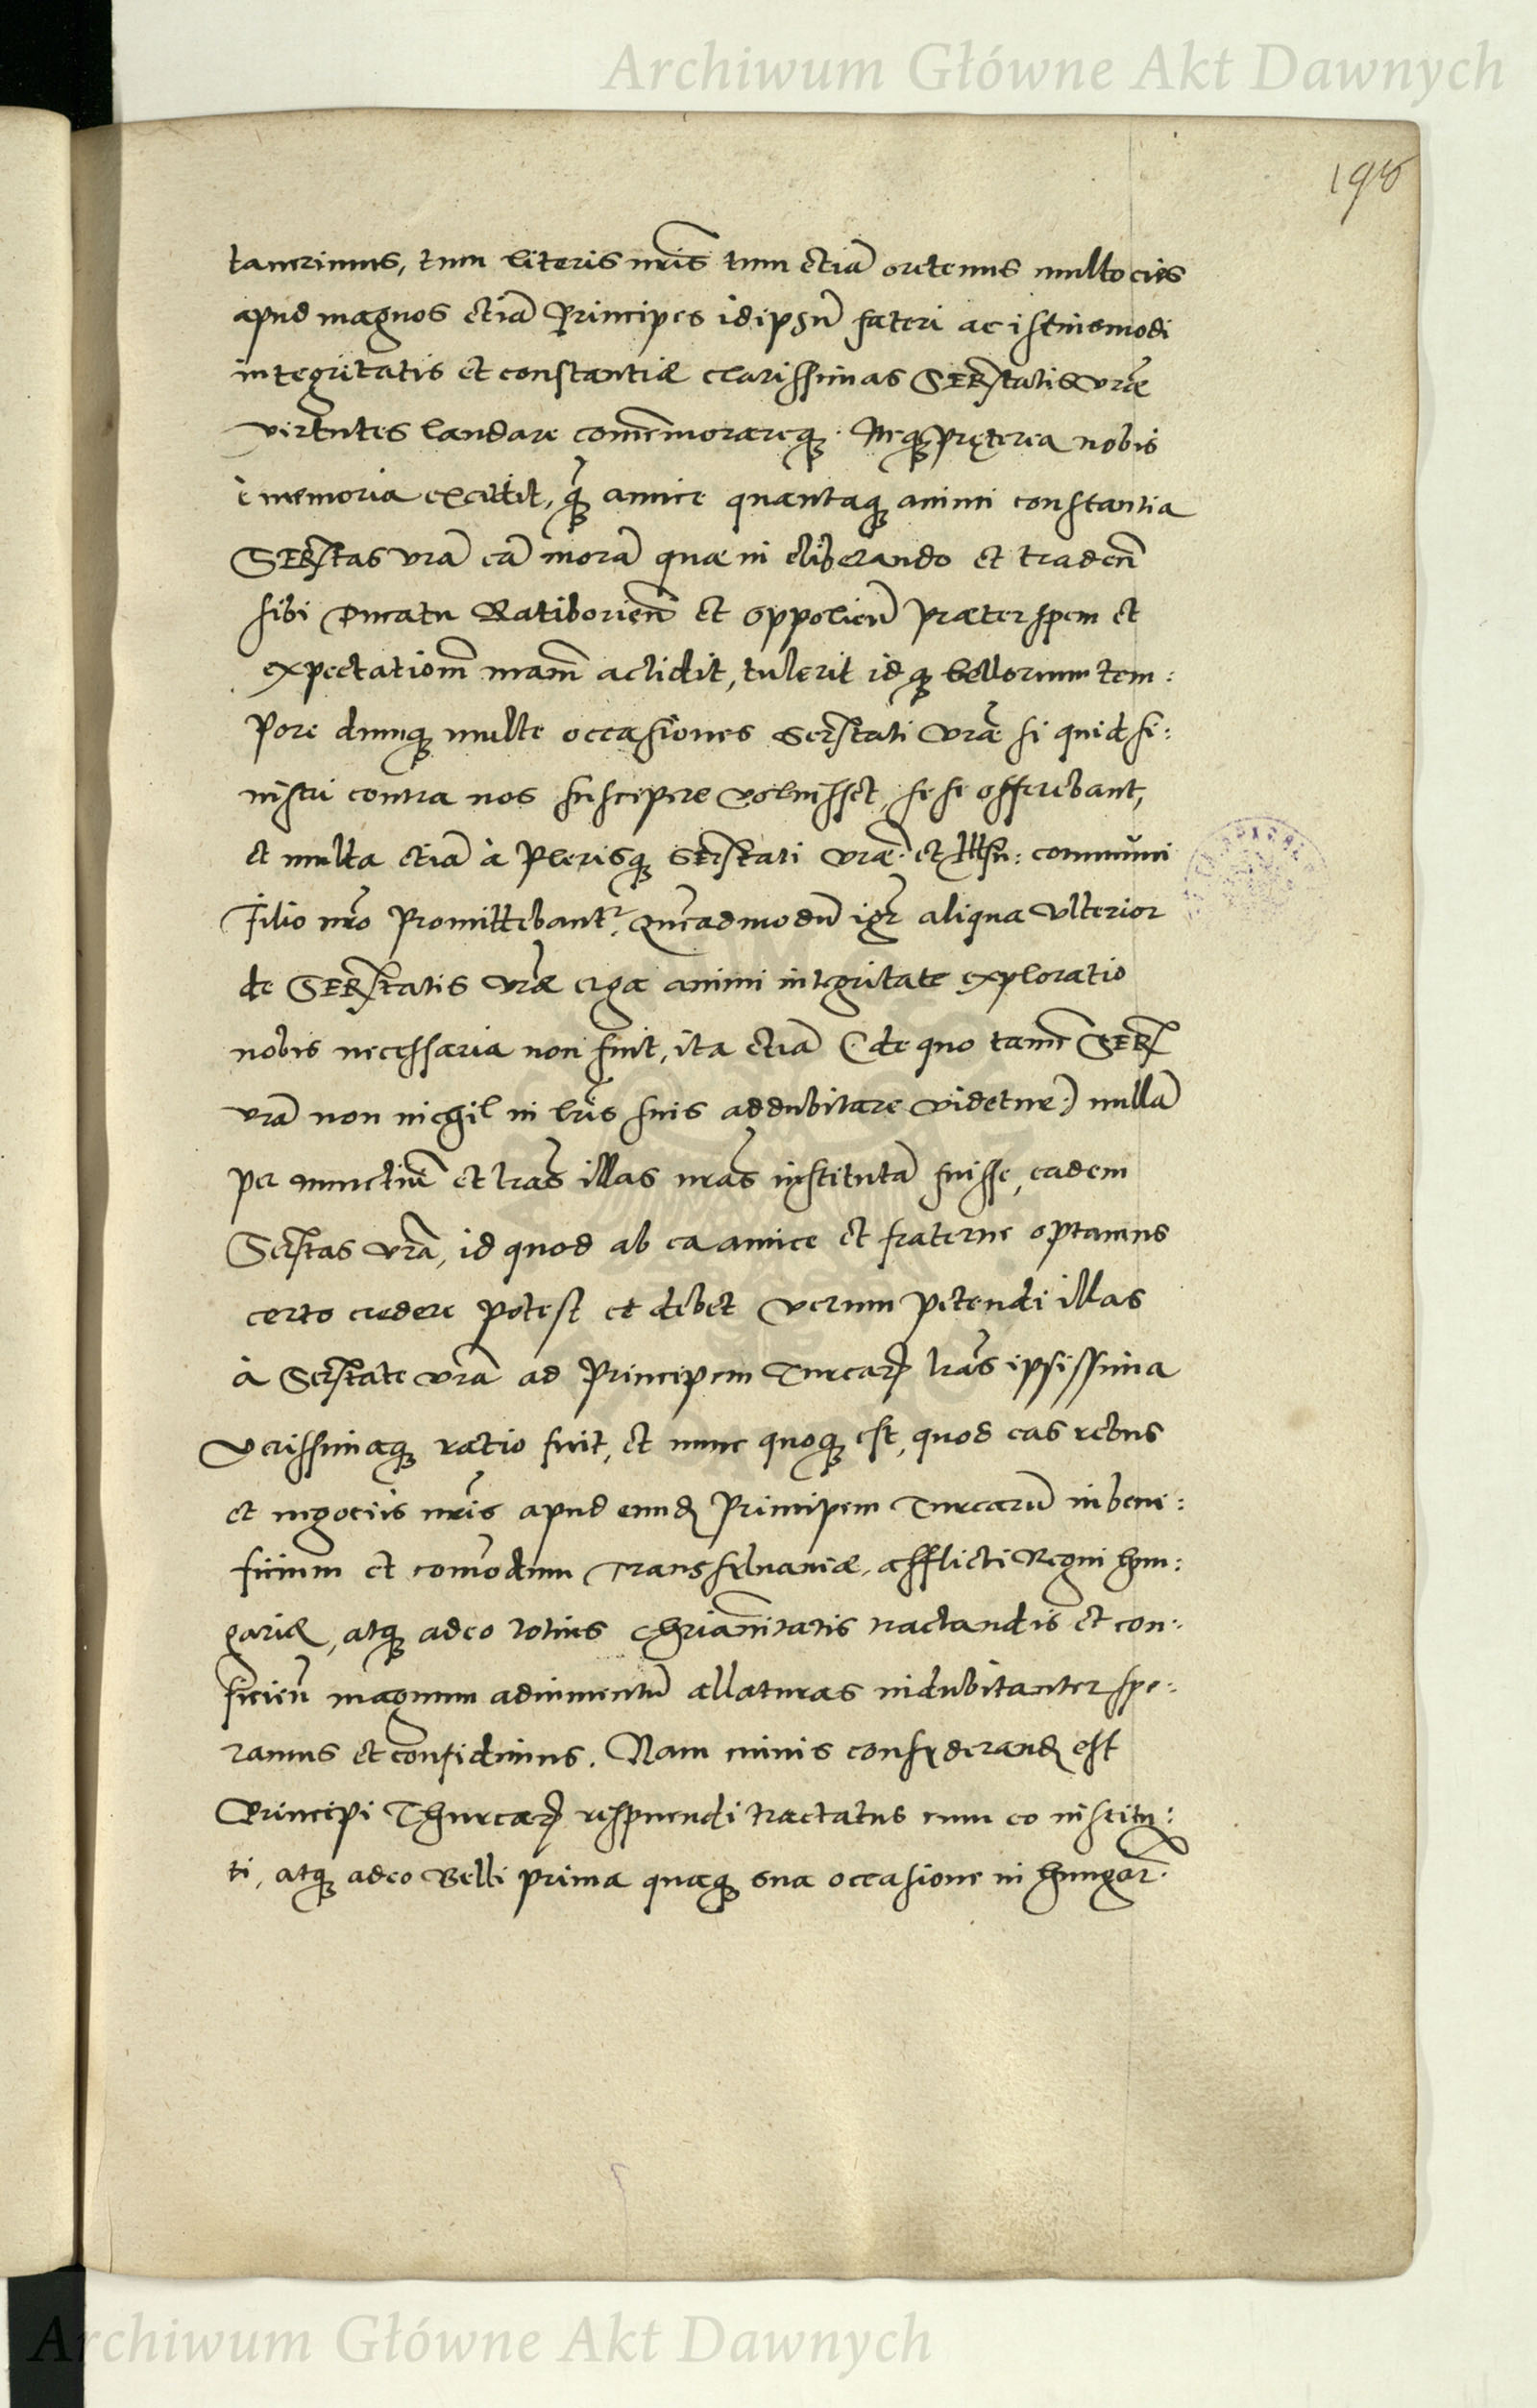 Archiwum Główne Akt Dawnych
198
tauerimus, tum literis nr̃is tum etiã oretenus multocies
apud magnos etiã Principes idipsũ fateri ac istiusmodi
integritatis et constantiæ clarissimas SERtatis vr̃æ
virtutes laudare com̃emorareq;. Neq; pręterea nobis
è memoria excidit, q̃ amice quantaq; animi constantia
SERtas vrã eã morã quæ in eliberando et traden̄
sibi Ducatu Ratiborien̄ et Oppolien̄ præter spem et
expectationẽ nrãm accidit, tulerit idq; bellorum tem:
pore dumq; multe occasiones Sertati vr̃æ si quid si:
nistri contra nos suscipere voluisset, sese offerebant,
et multa etiã à plerisq; Sertati vræ. et Illsn: communi
filio nr̃o promittebantr. Quẽadmodũ igr̃ aliqua vlterior
de SERtatis vr̃æ erga animi integritate exploratio
nobis necessaria non fuit, ita etiã (de quo tamẽ SER
vrã non nichil in lr̃is suis addubitare videtur:) nullã
per nunctiũ et lr̃as illas nr̃as institutã fuisse, eadem
Sertas vrã, id quod ab ea amice et fraterne optamus
certo credere potest et debet verum petendi illas
à Sertate vrã ad Principem Turcarꝝ lr̃as ipsissima
verissimaq; ratio fuit, et nunc quoq; est, quod eas rebus
et negociis nr̃is apud eund Principem Turcarũ in beni:
ficium et com̃odum Transsylvaniæ, afflicti Regni Hun:
gariæ, atq; adeo totius Chr̃ianitatis tractandis et con:
ficien̄ magnum adiumentũ allaturas indubitanter spe:
ramus et confidimus. Nam nimis consyderand est
Principi Thurcarꝝ respuendi tractatus cum eo institu:
ti, atq; adeo Belli prima quaq; sua occasione in Hungar̃.
Archiwum Główne Akt Dawnych